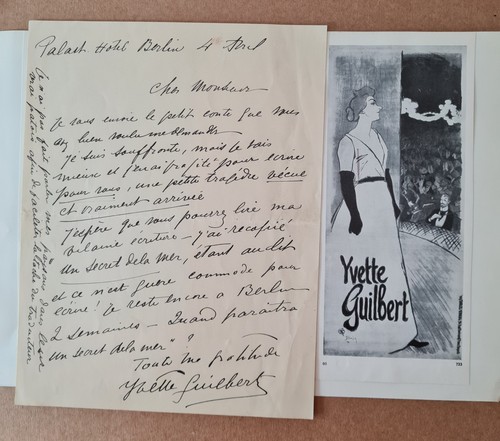 Palast Hotel Berlin 4 Avril
Cher Monsieur
Je vous envoie le petit conte que vous
avez bien voulu me demander
Je suis souffrante, mais je vais
mieux et j'en ai profité pour écrire
pour vous, une petite tragédie vécue
et vraiment arrivée
J'espère que vous pourrez lire ma
vilaine écriture - j'ai recopié
un secret de la mer, étant au lit
et ce n'est guère commode pour
écrire! Je reste encore à Berlin
2 semaines - Quand paraîtra
un secret de la mer"?
Toute ma gratitude
Yvette Guilbert
Je n'ai pas fait parler mes paysans dans leur
vrai patois afin de faciliter la tâche du traducteur
Yvette
Guilbert